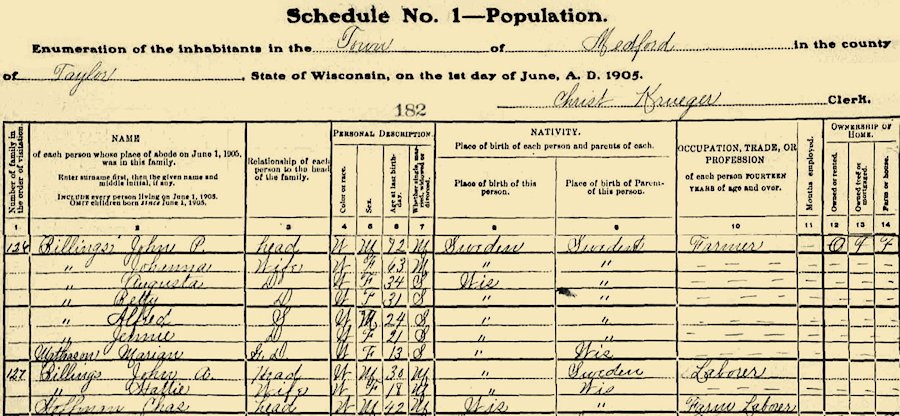 Schedule No. 1—Population.
Enumeration of the inhabitants in the Town of Medford in the county
of Taylor, State of Wisconsin, on the 1st day of June, A. D. 1905.
182
Christ Krueger Clerk.
Number of family in the order of visitation.
NAME
of each person whose place of abode on June 1, 1905, was in this family.
Enter surname first, then the given name and middle initial, if any.
INCLUDE every person living on June 1, 1905.
OMIT children born since June 1, 1905.
Relationship of each person to the head of the family.
PERSONAL DESCRIPTION.
Color or race.
Sex.
Age at last birthday.
Whether single, married, widowed or divorced.
NATIVITY.
Place of birth of each person and parents of each.
Place of birth of this person.
Place of birth of Parents of this person.
OCCUPATION, TRADE, OR PROFESSION
of each person FOURTEEN YEARS of age and over.
Months employed.
OWNERSHIP OF HOME.
Owned or rented.
Owned free or mortgaged.
Farm or house.
1 2 3 4 5 6 7 8 9 10 11 12 13 14
Billings John P. head W M 72 M Sweden Sweden Farmer O F F
" Johenna Wife W F 63 M " "
" Augusta D W F 34 S Wis "
" Betty D W F 31 S " "
" Alfred S W M 24 S " "
" Jennie D W F 21 S " "
Mathason Marian G. D W F 13 S " Wis
127 Billings John A. Head W M 30 M " Sweden Laborer
" Hattie Wife W F 18 M " Wis
Hoffman Chas head W M 42 M Wis " Farm Laborer